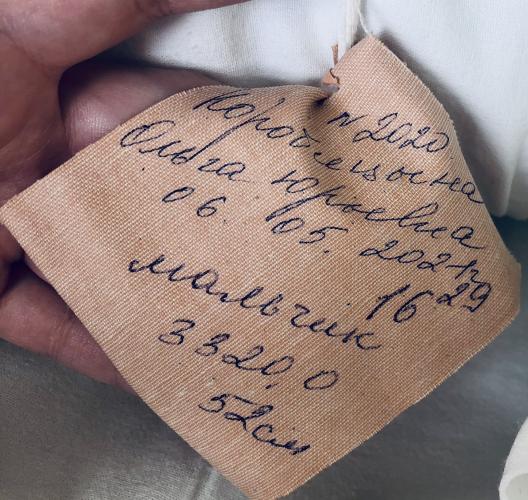 N 2020
Ольга Юрьевна
06. 05. 2021г
16 29
мальчик
3320,0
52см